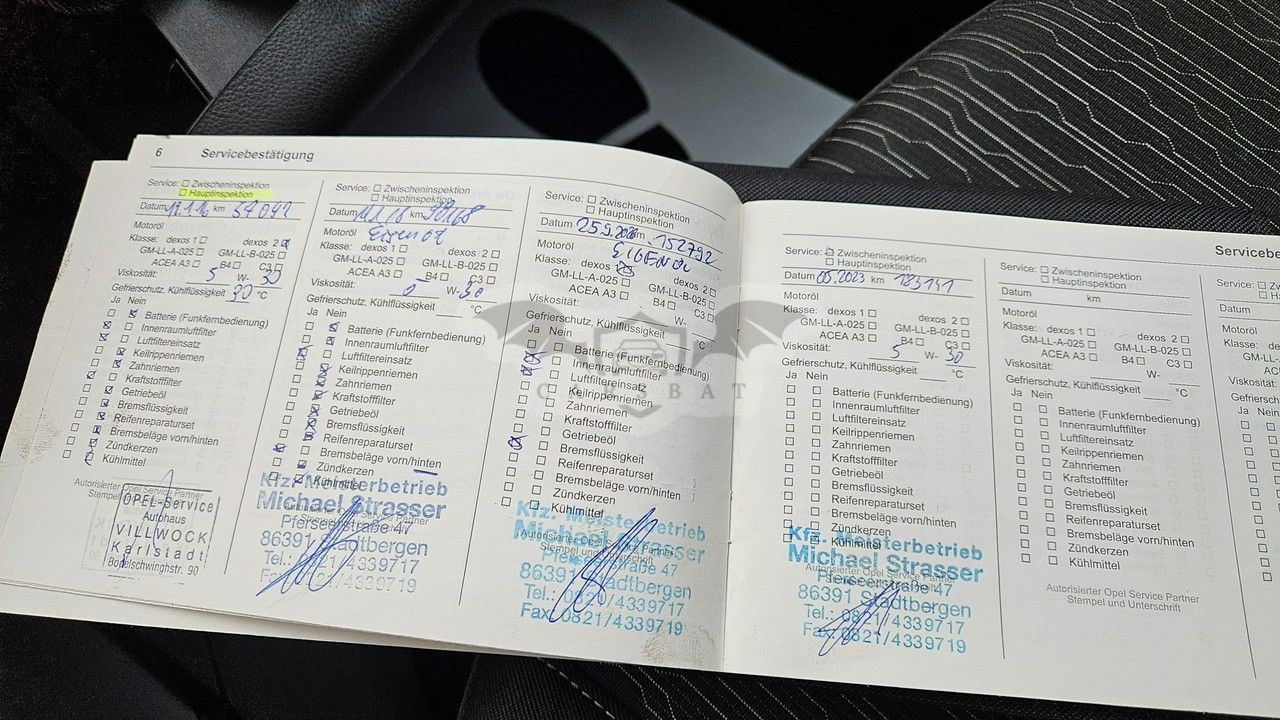 6 Servicebestätigung
Service: Zwischeninspektion
Hauptinspektion
Datum km 57092
Motoröl
Klasse: dexos 1 dexos 2
GM-LL-A-025 GM-LL-B-025
ACEA A3 B4 C3
Viskosität: 5 W- 30
Gefrierschutz, Kühlflüssigkeit 30 °C
Ja Nein
Batterie (Funkfernbedienung)
Innenraumluftfilter
Luftfiltereinsatz
Keilrippenriemen
Zahnriemen
Kraftstofffilter
Getriebeöl
Bremsflüssigkeit
Reifenreparaturset
Bremsbeläge vorn/hinten
Zündkerzen
Kühlmittel
Autorisierter Opel Service Partner
Stempel
OPEL-Service
Autohaus
VILLWOCK
Karlstadt
Bodelschwinghstr. 90
Service: Zwischeninspektion
Hauptinspektion
Datum km
Motoröl
Klasse: dexos 1 dexos 2
GM-LL-A-025 GM-LL-B-025
ACEA A3 B4 C3
Viskosität: W- 30
Gefrierschutz, Kühlflüssigkeit °C
Ja Nein
Batterie (Funkfernbedienung)
Innenraumluftfilter
Luftfiltereinsatz
Keilrippenriemen
Zahnriemen
Kraftstofffilter
Getriebeöl
Bremsflüssigkeit
Reifenreparaturset
Bremsbeläge vorn/hinten
Zündkerzen
Kühlmittel
Kfz. Meisterbetrieb
Michael Strasser
Pferseerstraße 47
86391 Stadtbergen
Tel.: 0821/4339717
Fax: 0821/4339719
Service: Zwischeninspektion
Hauptinspektion
Datum km 152792
Motoröl EIGENÖL
Klasse: dexos 1 dexos 2
GM-LL-A-025 GM-LL-B-025
ACEA A3 B4 C3
Viskosität: W-
Gefrierschutz, Kühlflüssigkeit °C
Ja Nein
Batterie (Funkfernbedienung)
Innenraumluftfilter
Luftfiltereinsatz
Keilrippenriemen
Zahnriemen
Kraftstofffilter
Getriebeöl
Bremsflüssigkeit
Reifenreparaturset
Bremsbeläge vorn/hinten
Zündkerzen
Kühlmittel
Kfz. Meisterbetrieb
Michael Strasser
Pferseerstraße 47
86391 Stadtbergen
Tel.: 0821/4339717
Fax: 0821/4339719
Service: Zwischeninspektion
Hauptinspektion
Datum 05.2023 km
Motoröl
Klasse: dexos 1 dexos 2
GM-LL-A-025 GM-LL-B-025
ACEA A3 B4 C3
Viskosität: 5 W- 30
Gefrierschutz, Kühlflüssigkeit °C
Ja Nein
Batterie (Funkfernbedienung)
Innenraumluftfilter
Luftfiltereinsatz
Keilrippenriemen
Zahnriemen
Kraftstofffilter
Getriebeöl
Bremsflüssigkeit
Reifenreparaturset
Bremsbeläge vorn/hinten
Zündkerzen
Kühlmittel
Kfz. Meisterbetrieb
Michael Strasser
Autorisierter Opel Service Partner
Pferseerstraße 47
86391 Stadtbergen
Tel.: 0821/4339717
Fax: 0821/4339719
Service: Zwischeninspektion
Hauptinspektion
Datum km
Motoröl
Klasse: dexos 1 dexos 2
GM-LL-A-025 GM-LL-B-025
ACEA A3 B4 C3
Viskosität: W-
Gefrierschutz, Kühlflüssigkeit °C
Ja Nein
Batterie (Funkfernbedienung)
Innenraumluftfilter
Luftfiltereinsatz
Keilrippenriemen
Zahnriemen
Kraftstofffilter
Getriebeöl
Bremsflüssigkeit
Reifenreparaturset
Bremsbeläge vorn/hinten
Zündkerzen
Kühlmittel
Autorisierter Opel Service Partner
Stempel und Unterschrift
Servicebe
Service:
Datum
Motoröl
Klasse:
Viskosität:
Gefriersch
Ja Nein